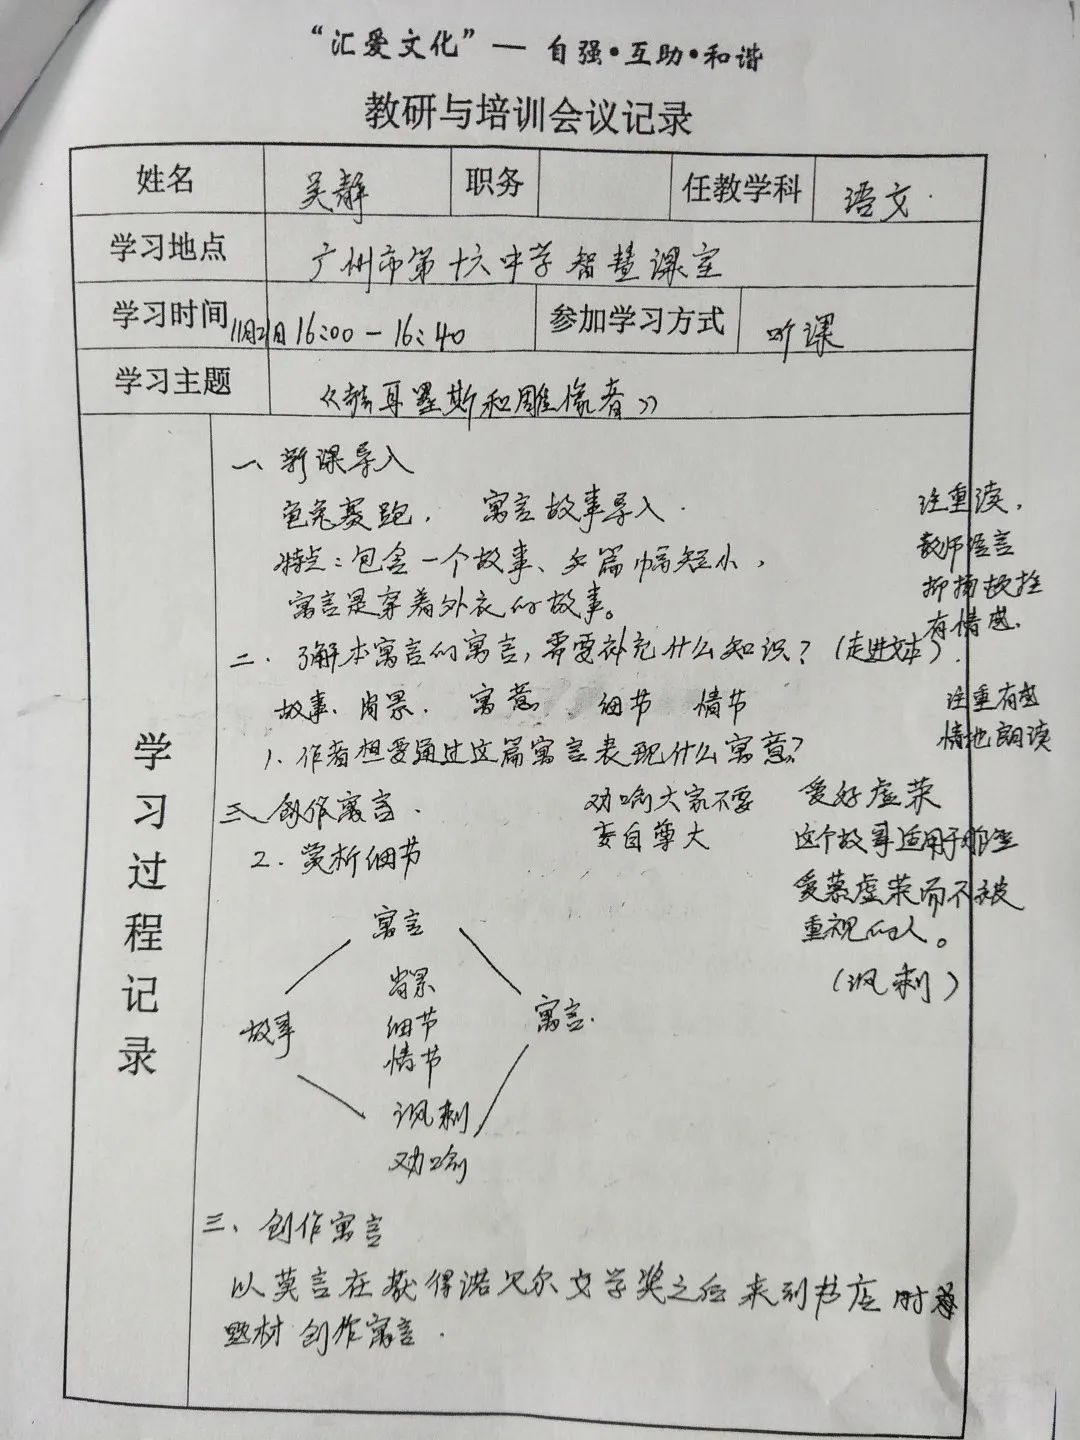 “汇爱文化”— 自强·互助·和谐
教研与培训会议记录
姓名 吴静 职务 任教学科 语文
学习地点 广州市第十六中学智慧课室
学习时间 11月21日 16:00-16:40 参加学习方式 听课
学习主题 《赫耳墨斯和雕像者》
学习过程记录
一、新课导入
龟兔赛跑. 寓言故事导入.
特点:包含一个故事、篇幅短小,
寓言是穿着外衣的故事。
注重读.
教师语言
抑扬顿挫
有情感.
二. 了解本寓言的寓言,需要补充什么知识?(走进文本).
故事、背景. 寓意 细节 情节
注重有感
情地朗读
1. 作者想要通过这篇寓言表现什么寓意?
三、创作寓言.
劝喻大家不要
妄自尊大
爱好虚荣
这个故事适用于那些
爱慕虚荣而不被
重视的人。
(讽刺)
2. 赏析细节
寓言
背景
细节
情节
故事
寓言.
讽刺
劝喻
三、创作寓言
以莫言在获得诺贝尔文学奖之后来到书店时为
题材创作寓言.